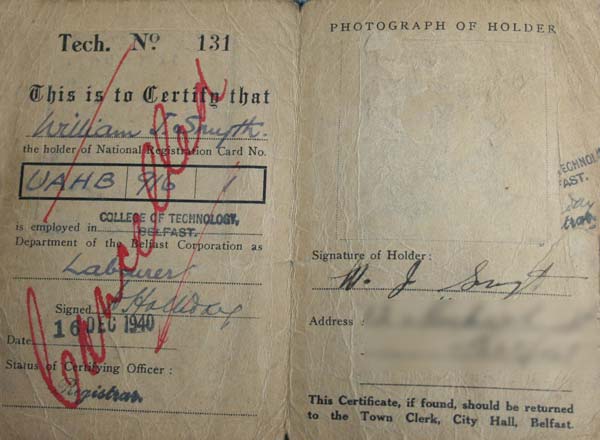 Tech. No 131
This is to Certify that
William J. Smyth.
the holder of National Registration Card No.
UAHB 9/6 1
COLLEGE OF TECHNOLOGY,
BELFAST.
is employed in
Department of the Belfast Corporation as
Labourer
Signed
16 DEC 1940
Date
Status of Certifying Officer :
Registrar
Cancelled
PHOTOGRAPH OF HOLDER
TECHNOLOGY
FAST.
Signature of Holder :
W. J. Smyt
Address :
This Certificate, if found, should be returned
to the Town Clerk, City Hall, Belfast.